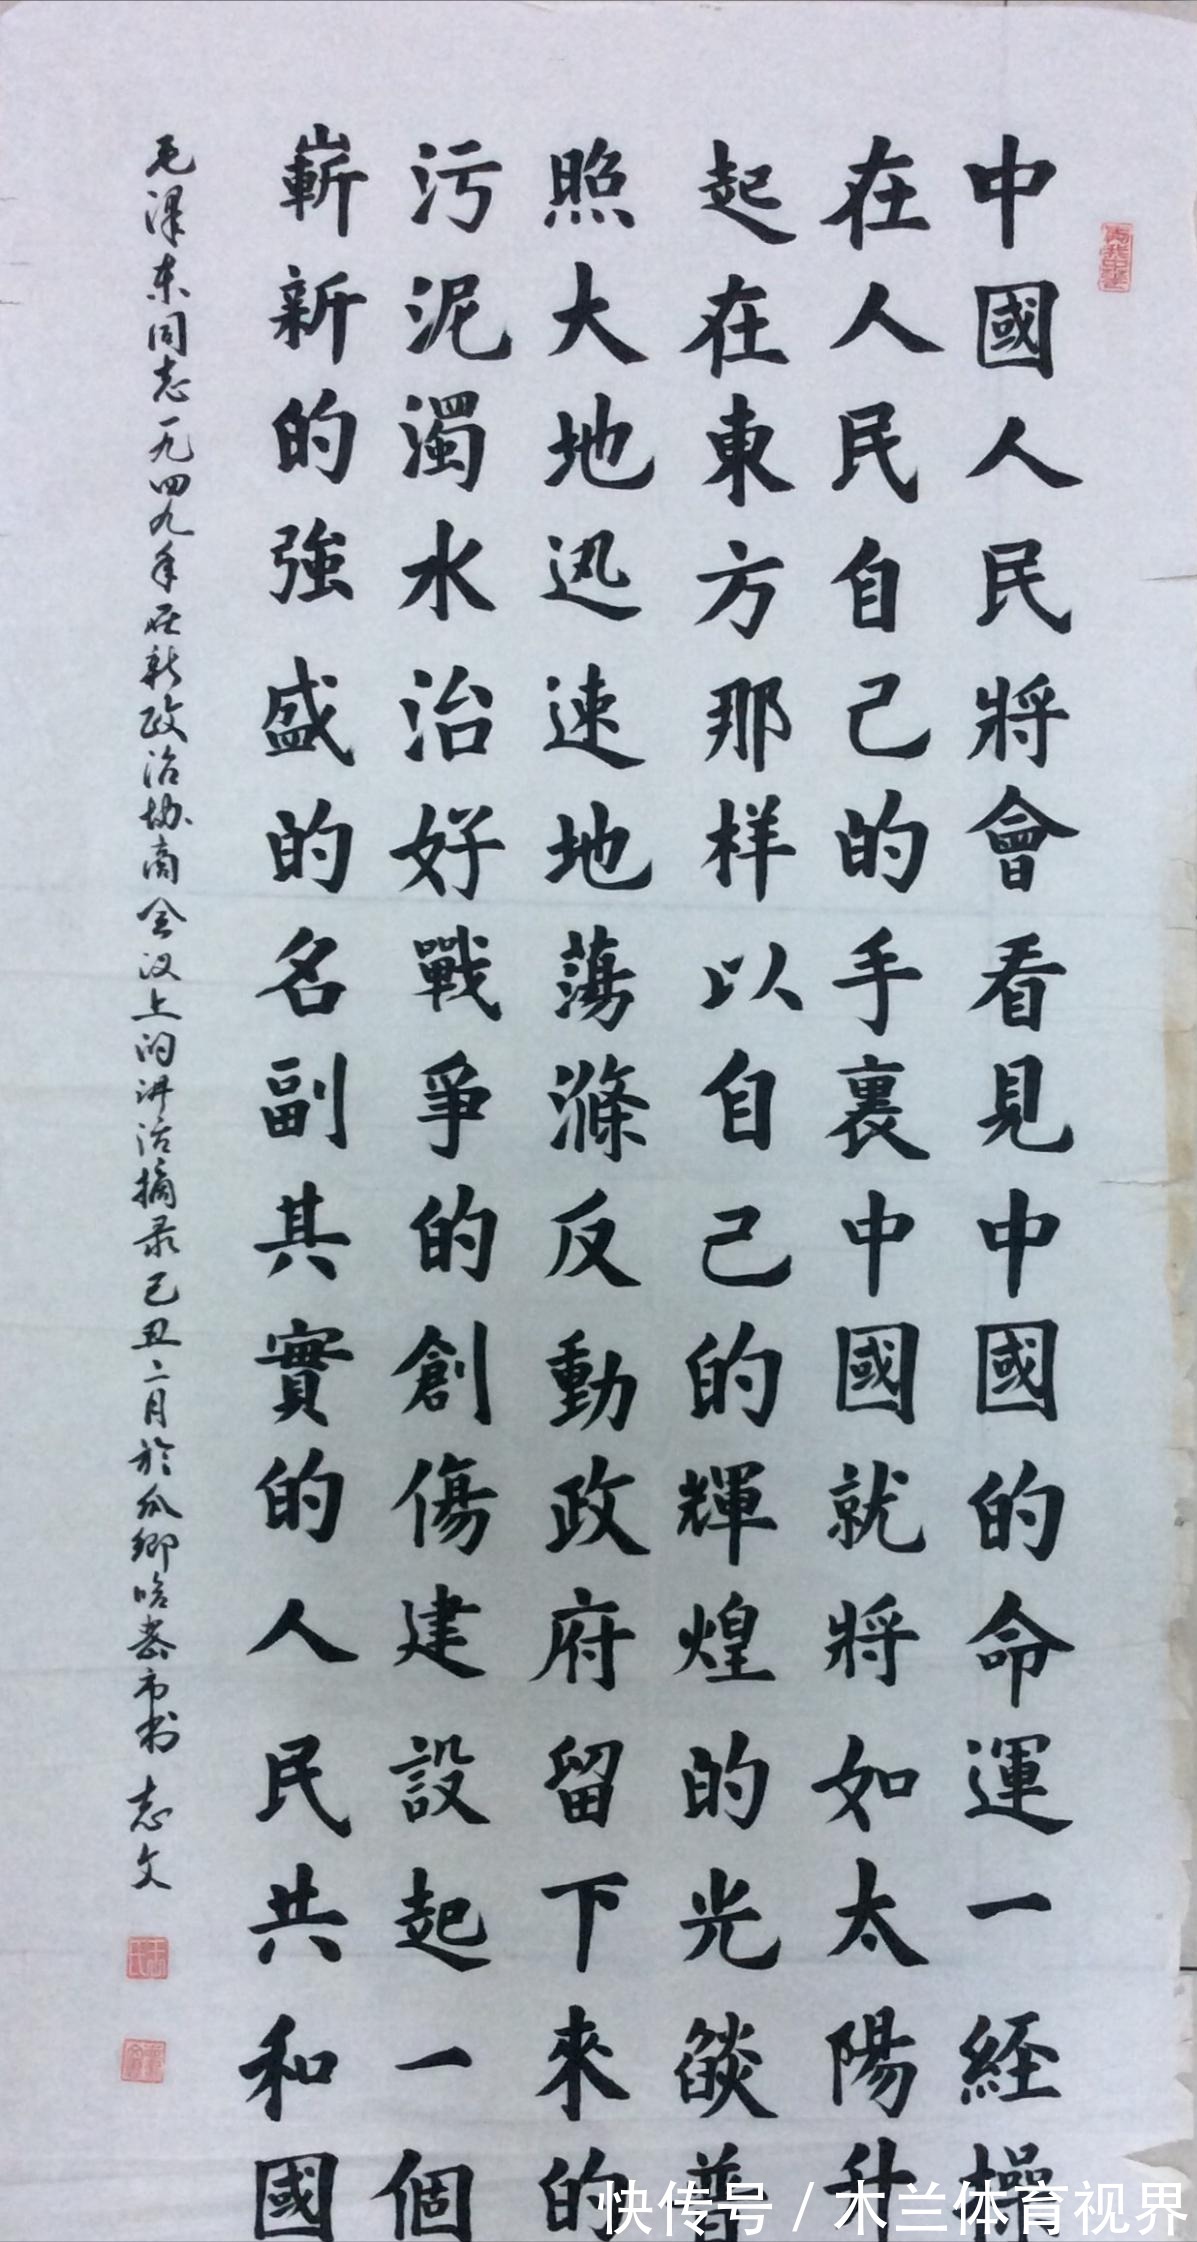 中國人民將會看見中國的命運一経操
在人民自己的手裏中國就將如太陽升
起在東方那样以自己的輝煌的光燄普
照大地迅速地蕩滌反動政府留下來的
污泥濁水治好戰爭的創傷建設起一個
嶄新的強盛的名副其實的人民共和國
毛泽东同志一九四九年在新政治协商会议上的讲话摘录己丑二月於瓜鄉 志文
快传号/木兰体育视界